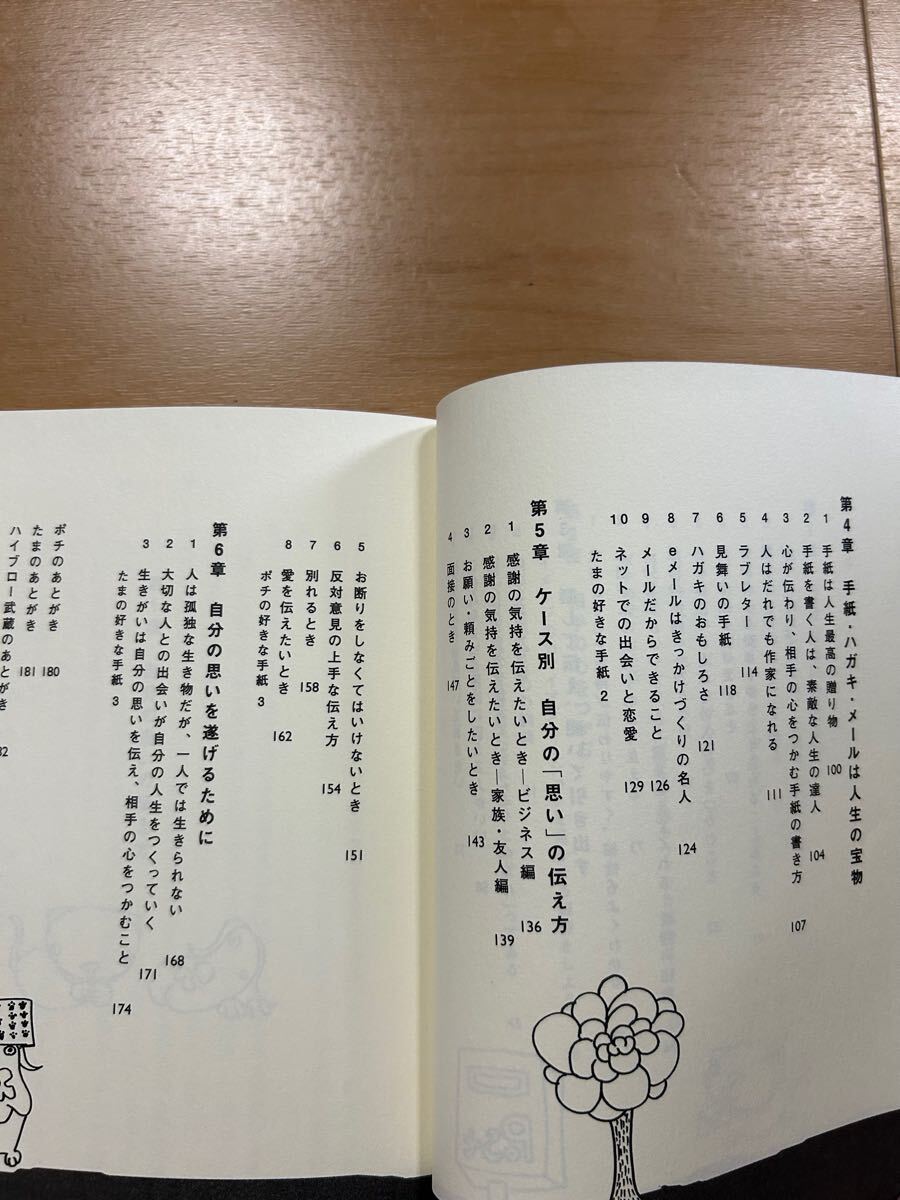 第4章　手紙・ハガキ・メールは人生の宝物
1　手紙は人生最高の贈り物　100
2　手紙を書く人は、素敵な人生の達人　104
3　心が伝わり、相手の心をつかむ手紙の書き方　107
4　人はだれでも作家になれる　111
5　ラブレター　114
6　見舞いの手紙　118
7　ハガキのおもしろさ　121
8　eメールはきっかけづくりの名人　124
9　メールだからできること　126
10　ネットでの出会いと恋愛　129
たまの好きな手紙　2
第5章　ケース別　自分の「思い」の伝え方
1　感謝の気持を伝えたいとき―ビジネス編　136
2　感謝の気持を伝えたいとき―家族・友人編　139
3　お願い・頼みごとをしたいとき　143
4　面接のとき　147
5　お断りをしなくてはいけないとき　151
6　反対意見の上手な伝え方　154
7　別れるとき　158
8　愛を伝えたいとき　162
ポチの好きな手紙　3
第6章　自分の思いを遂げるために
1　人は孤独な生き物だが、一人では生きられない　168
2　大切な人との出会いが自分の人生をつくっていく　171
3　生きがいは自分の思いを伝え、相手の心をつかむこと　174
たまの好きな手紙　3
ポチのあとがき　180
たまのあとがき　181
ハイブロー武蔵のあとがき